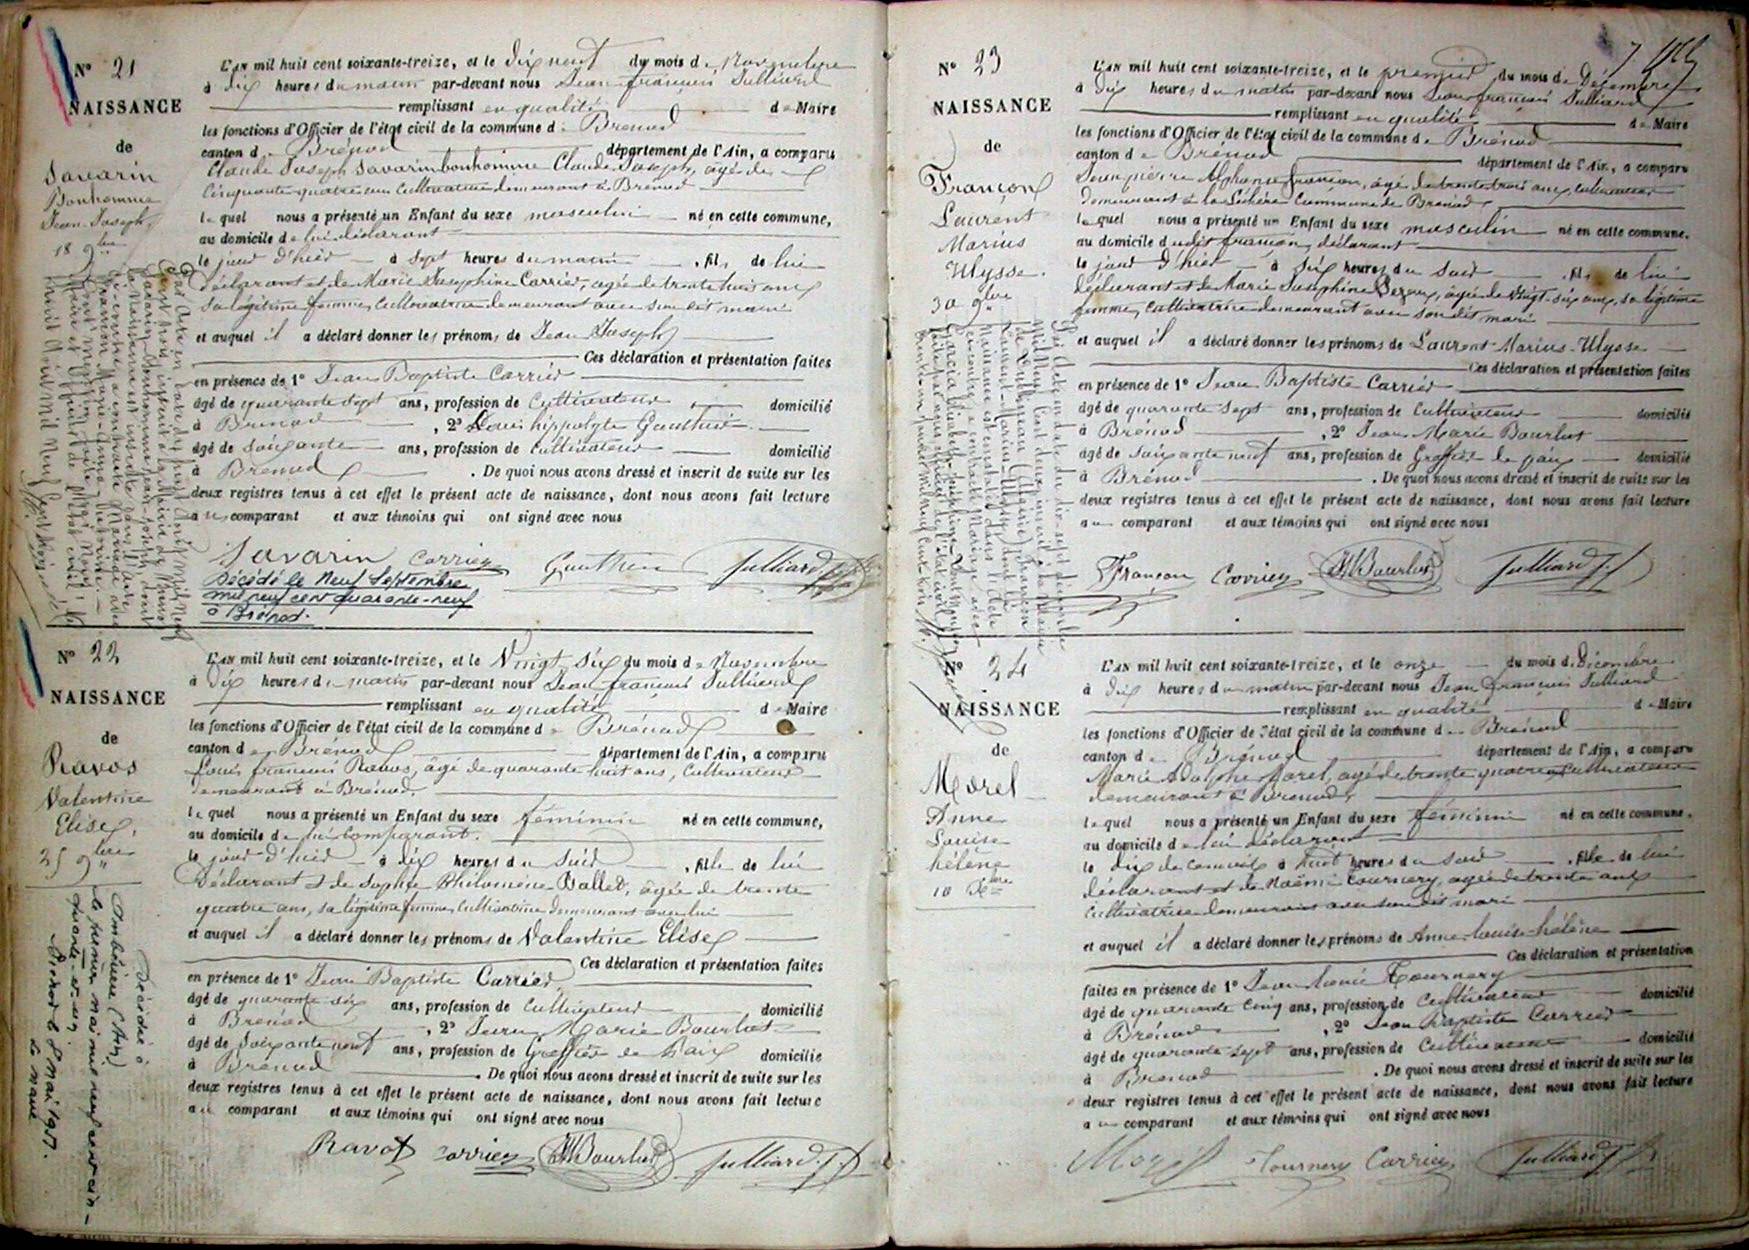 N° 21
NAISSANCE
de
Savarin
Bonhomme
Jean-Joseph
18 9bre
L'AN mil huit cent soixante-treize, et le dix neuf du mois de Novembre
à dix heures du matin par-devant nous Jean François Julliard
remplissant en qualité de Maire
les fonctions d'Officier de l'état civil de la commune de Brenod
canton de Brénod département de l'Ain, a comparu
Claude Joseph Savarin bonhomme Claude Joseph, âgé de
Cinquante quatre ans Cultivateur demeurant à Brenod
lequel nous a présenté un Enfant du sexe masculin né en cette commune,
au domicile de lui déclarant
le jour d'hier à sept heures du matin, fils de lui
déclarant et de Marie Josephine Carrier, agée de trente huit ans
sa légitime femme, Cultivatrice demeurant avec son dit mari
et auquel il a déclaré donner les prénoms de Jean Joseph
Ces déclaration et présentation faites
en présence de 1° Jean Baptiste Carrier
âgé de quarante sept ans, profession de Cultivateur domicilié
à Brenod, 2° Louis hippolyte Gauthier
âgé de soixante ans, profession de Cultivateur domicilié
à Brenod. De quoi nous avons dressé et inscrit de suite sur les
deux registres tenus à cet effet le présent acte de naissance, dont nous avons fait lecture
au comparant et aux témoins qui ont signé avec nous
Savarin Carrier Gauthier Julliard J. f.
Décédé le Neuf Septembre
mil neuf cent quarante-neuf
à Brénod.
N° 22
NAISSANCE
de
Ravos
Valentine
Elise
25 9bre
Décédée à
Ambérieu (Ain)
le premier mai mil neuf cent cin-
quante-et-un.
Brénod le 8 mai 1951.
Le maire
L'AN mil huit cent soixante-treize, et le Vingt six du mois de Novembre
à dix heures du matin par-devant nous Jean françois Julliard
remplissant en qualité de Maire
les fonctions d'Officier de l'état civil de la commune de Brénod
canton de Brénod département de l'Ain, a comparu
Louis françois Ravos, âgé de quarante huit ans, Cultivateur
demeurant à Brénod,
lequel nous a présenté un Enfant du sexe féminin né en cette commune,
au domicile de lui Comparant.
le jour d'hier à dix heures du soir, fille de lui
déclarant et de Sophie Philomène Ballet, âgée de trente
quatre ans, sa légitime femme, Cultivatrice demeurant avec lui
et auquel il a déclaré donner les prénoms de Valentine Elise
Ces déclaration et présentation faites
en présence de 1° Jean Baptiste Carrier
âgé de quarante six ans, profession de Cultivateur domicilié
à Brenod, 2° Jean Marie Bourlot
âgé de soixante neuf ans, profession de Greffier de Paix domicilié
à Brenod. De quoi nous avons dressé et inscrit de suite sur les
deux registres tenus à cet effet le présent acte de naissance, dont nous avons fait lecture
au comparant et aux témoins qui ont signé avec nous
Ravot Carrier JMBourlot Julliard J. f.
N° 23
NAISSANCE
de
Françon
Laurent
Marius
Ulysse.
30 9bre
L'AN mil huit cent soixante-treize, et le premier du mois de Décembre
à dix heures du matin par-devant nous Jean françois Julliard
remplissant en qualité de Maire
les fonctions d'Officier de l'état civil de la commune de Brénod
canton de Brénod département de l'Ain, a comparu
Jean pierre Alphonse françon, âgé de trente trois ans, cultivateur
demeurant à la Commune de Brenod
lequel nous a présenté un Enfant du sexe masculin né en cette commune.
au domicile dudit françon, déclarant
le jour d'hier à six heures du soir, fils de lui
déclarant et de Marie Josephine, âgée de Vingt-six ans, sa légitime
femme, Cultivatrice demeurant avec son dit mari
et auquel il a déclaré donner les prénoms de Laurent-Marius-Ulysse
Ces déclaration et présentation faites
en présence de 1° Jean Baptiste Carrier
âgé de quarante sept ans, profession de Cultivateur domicilié
à Brénod, 2° Jean Marie Bourlot
âgé de soixante neuf ans, profession de Greffier de paix domicilié
à Brénod. De quoi nous avons dressé et inscrit de suite sur les
deux registres tenus à cet effet le présent acte de naissance, dont nous avons fait lecture
au comparant et aux témoins qui ont signé avec nous
Françon Carrier JMBourlot Julliard J. f.
N° 24
NAISSANCE
de
Morel
Anne
Louise
hélène
10 Xbre
L'AN mil huit cent soixante-treize, et le onze du mois de Décembre
à dix heures du matin par-devant nous Jean françois Julliard
remplissant en qualité de Maire
les fonctions d'Officier de l'état civil de la commune de Brénod
canton de Brénod département de l'Ain, a comparu
Marie Adolphe Morel, agé de trente quatre ans Cultivateur
demeurant à Brenod,
lequel nous a présenté un Enfant du sexe féminin né en cette commune,
au domicile de lui déclarant
le dix de ce mois à huit heures du soir, fille de lui
déclarant et de Noëmi Tournery, agée de trente ans
Cultivatrice demeurant avec son dit mari
et auquel il a déclaré donner les prénoms de Anne-louise-hélène
Ces déclaration et présentation
faites en présence de 1° Jean Marie Tournery
âgé de quarante cinq ans, profession de Cultivateur domicilié
à Brénod, 2° Jean Baptiste Carrier
âgé de quarante sept ans, profession de Cultivateur domicilié
à Brenod. De quoi nous avons dressé et inscrit de suite sur les
deux registres tenus à cet effet le présent acte de naissance, dont nous avons fait lecture
au comparant et aux témoins qui ont signé avec nous
Morel Tournery Carrier Julliard J. f.